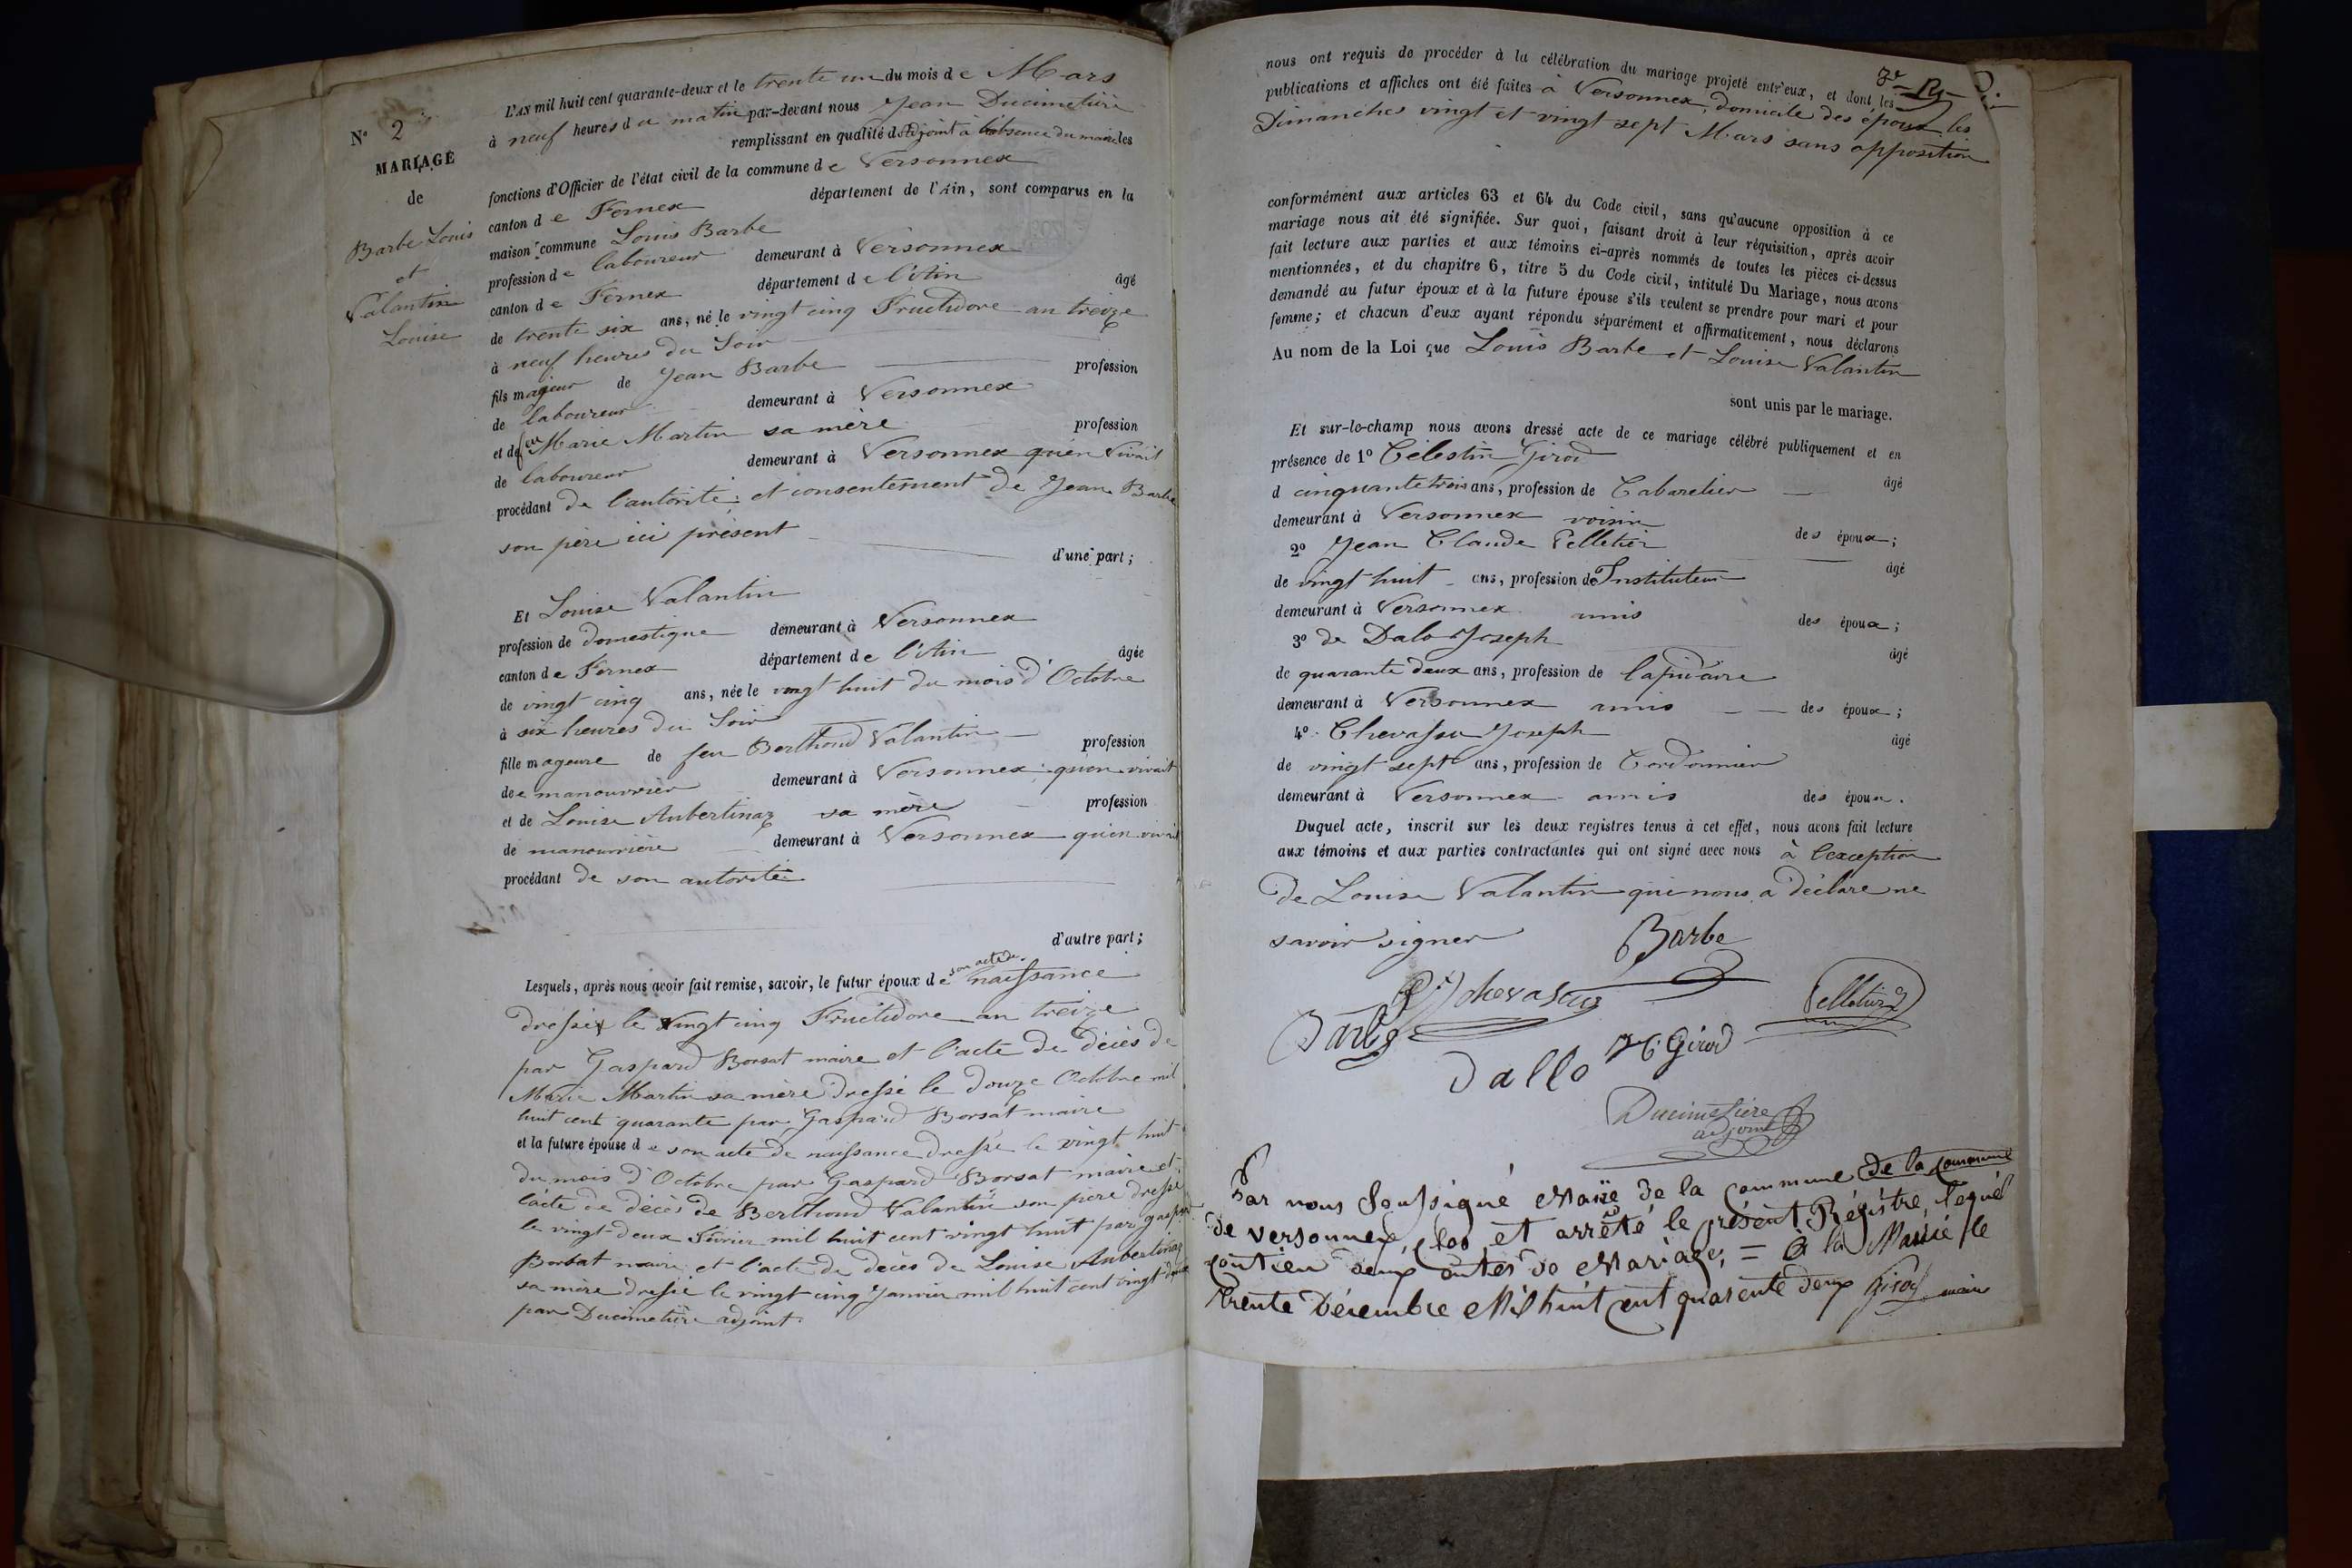 N° 2
MARIAGE
de
Barbe Louis
et
Valantin
Louise
L'AN mil huit cent quarante-deux et le trente un du mois de Mars
à neuf heures du matin par-devant nous Jean Ducimetière
remplissant en qualité d'adjoint à l'absence du maire les
fonctions d'Officier de l'état civil de la commune de Versonnex
canton de Fernex département de l'Ain, sont comparus en la
maison commune Louis Barbe
profession de laboureur demeurant à Versonnex
canton de Fernex département de l'Ain âgé
de trente six ans, né le vingt cinq Fructidore an treize
à neuf heures du Soir
fils majeur de Jean Barbe profession
de laboureur demeurant à Versonnex
et de feu Marie Martin sa mère profession
de laboureur demeurant à Versonnex qu'en vivait
procédant de l'autorité et consentement de Jean Barbe
son père ici présent
d'une part;
Et Louise Valantin
profession de domestique demeurant à Versonnex
canton de Fernex département de l'Ain âgée
de vingt cinq ans, née le vingt huit du mois d'Octobre
à six heures du Soir
fille mageure de feu Berthoud Valantin profession
de manouvrier demeurant à Versonnex qu'en vivait
et de Louise Aubertinaz sa mère profession
de manouvrière demeurant à Versonnex qu'en vivait
procédant de son autorité
d'autre part;
Lesquels, après nous avoir fait remise, savoir, le futur époux de son acte de naissance
dressé le vingt cinq Fructidore an treize
par Gaspard Borsat maire et l'acte de décès de
Marie Martin sa mère dressé le douze Octobre mil
huit cent quarante par Gaspard Borsat maire
et la future épouse de son acte de naissance dressé le vingt huit
du mois d'Octobre par Gaspard Borsat maire et
l'acte de décès de Berthoud Valantin son père dressé
le vingt-deux Février mil huit cent vingt huit par gaspard
Borsat maire et l'acte de décès de Louise Aubertinaz
sa mère dressé le vingt cinq Janvier mil huit cent vingt deux
par Ducimetière adjoint
nous ont requis de procéder à la célébration du mariage projeté entr'eux, et dont les
publications et affiches ont été faites à Versonnex, domicile des époux, les
Dimanches vingt et vingt sept Mars sans opposition
conformément aux articles 63 et 64 du Code civil, sans qu'aucune opposition à ce
mariage nous ait été signifiée. Sur quoi, faisant droit à leur réquisition, après avoir
fait lecture aux parties et aux témoins ci-après nommés de toutes les pièces ci-dessus
mentionnées, et du chapitre 6, titre 5 du Code civil, intitulé Du Mariage, nous avons
demandé au futur époux et à la future épouse s'ils veulent se prendre pour mari et pour
femme; et chacun d'eux ayant répondu séparément et affirmativement, nous déclarons
Au nom de la Loi que Louis Barbe et Louise Valantin
sont unis par le mariage.
Et sur-le-champ nous avons dressé acte de ce mariage célébré publiquement et en
présence de 1° Célestin Girod
âgé
d cinquante trois ans, profession de Cabaretier
demeurant à Versonnex voisin des époux;
2° Jean Claude Pelletier âgé
de vingt huit ans, profession de Instituteur
demeurant à Versonnex amis des époux;
3° de Dalo Joseph âgé
de quarante deux ans, profession de lapidaire
demeurant à Versonnex amis des époux;
4° Chevassu Joseph âgé
de vingt sept ans, profession de Cordonnier
demeurant à Versonnex amis des époux.
Duquel acte, inscrit sur les deux registres tenus à cet effet, nous avons fait lecture
aux témoins et aux parties contractantes qui ont signé avec nous à l'exception
de Louise Valantin qui nous a déclare ne
savoir signer
Barbe
chevassus
Pelletier
Barbe
Girod
Dallo
Ducimetière
adjoint
Par nous Soussigné Maire de la commune de la commune
de versonnex, clos et arrêté le présent Régistre, lequel
contien deux autes de Mariage, = A la Mairie le
trente Décembre Mil huit cent quarente deux Girod maire